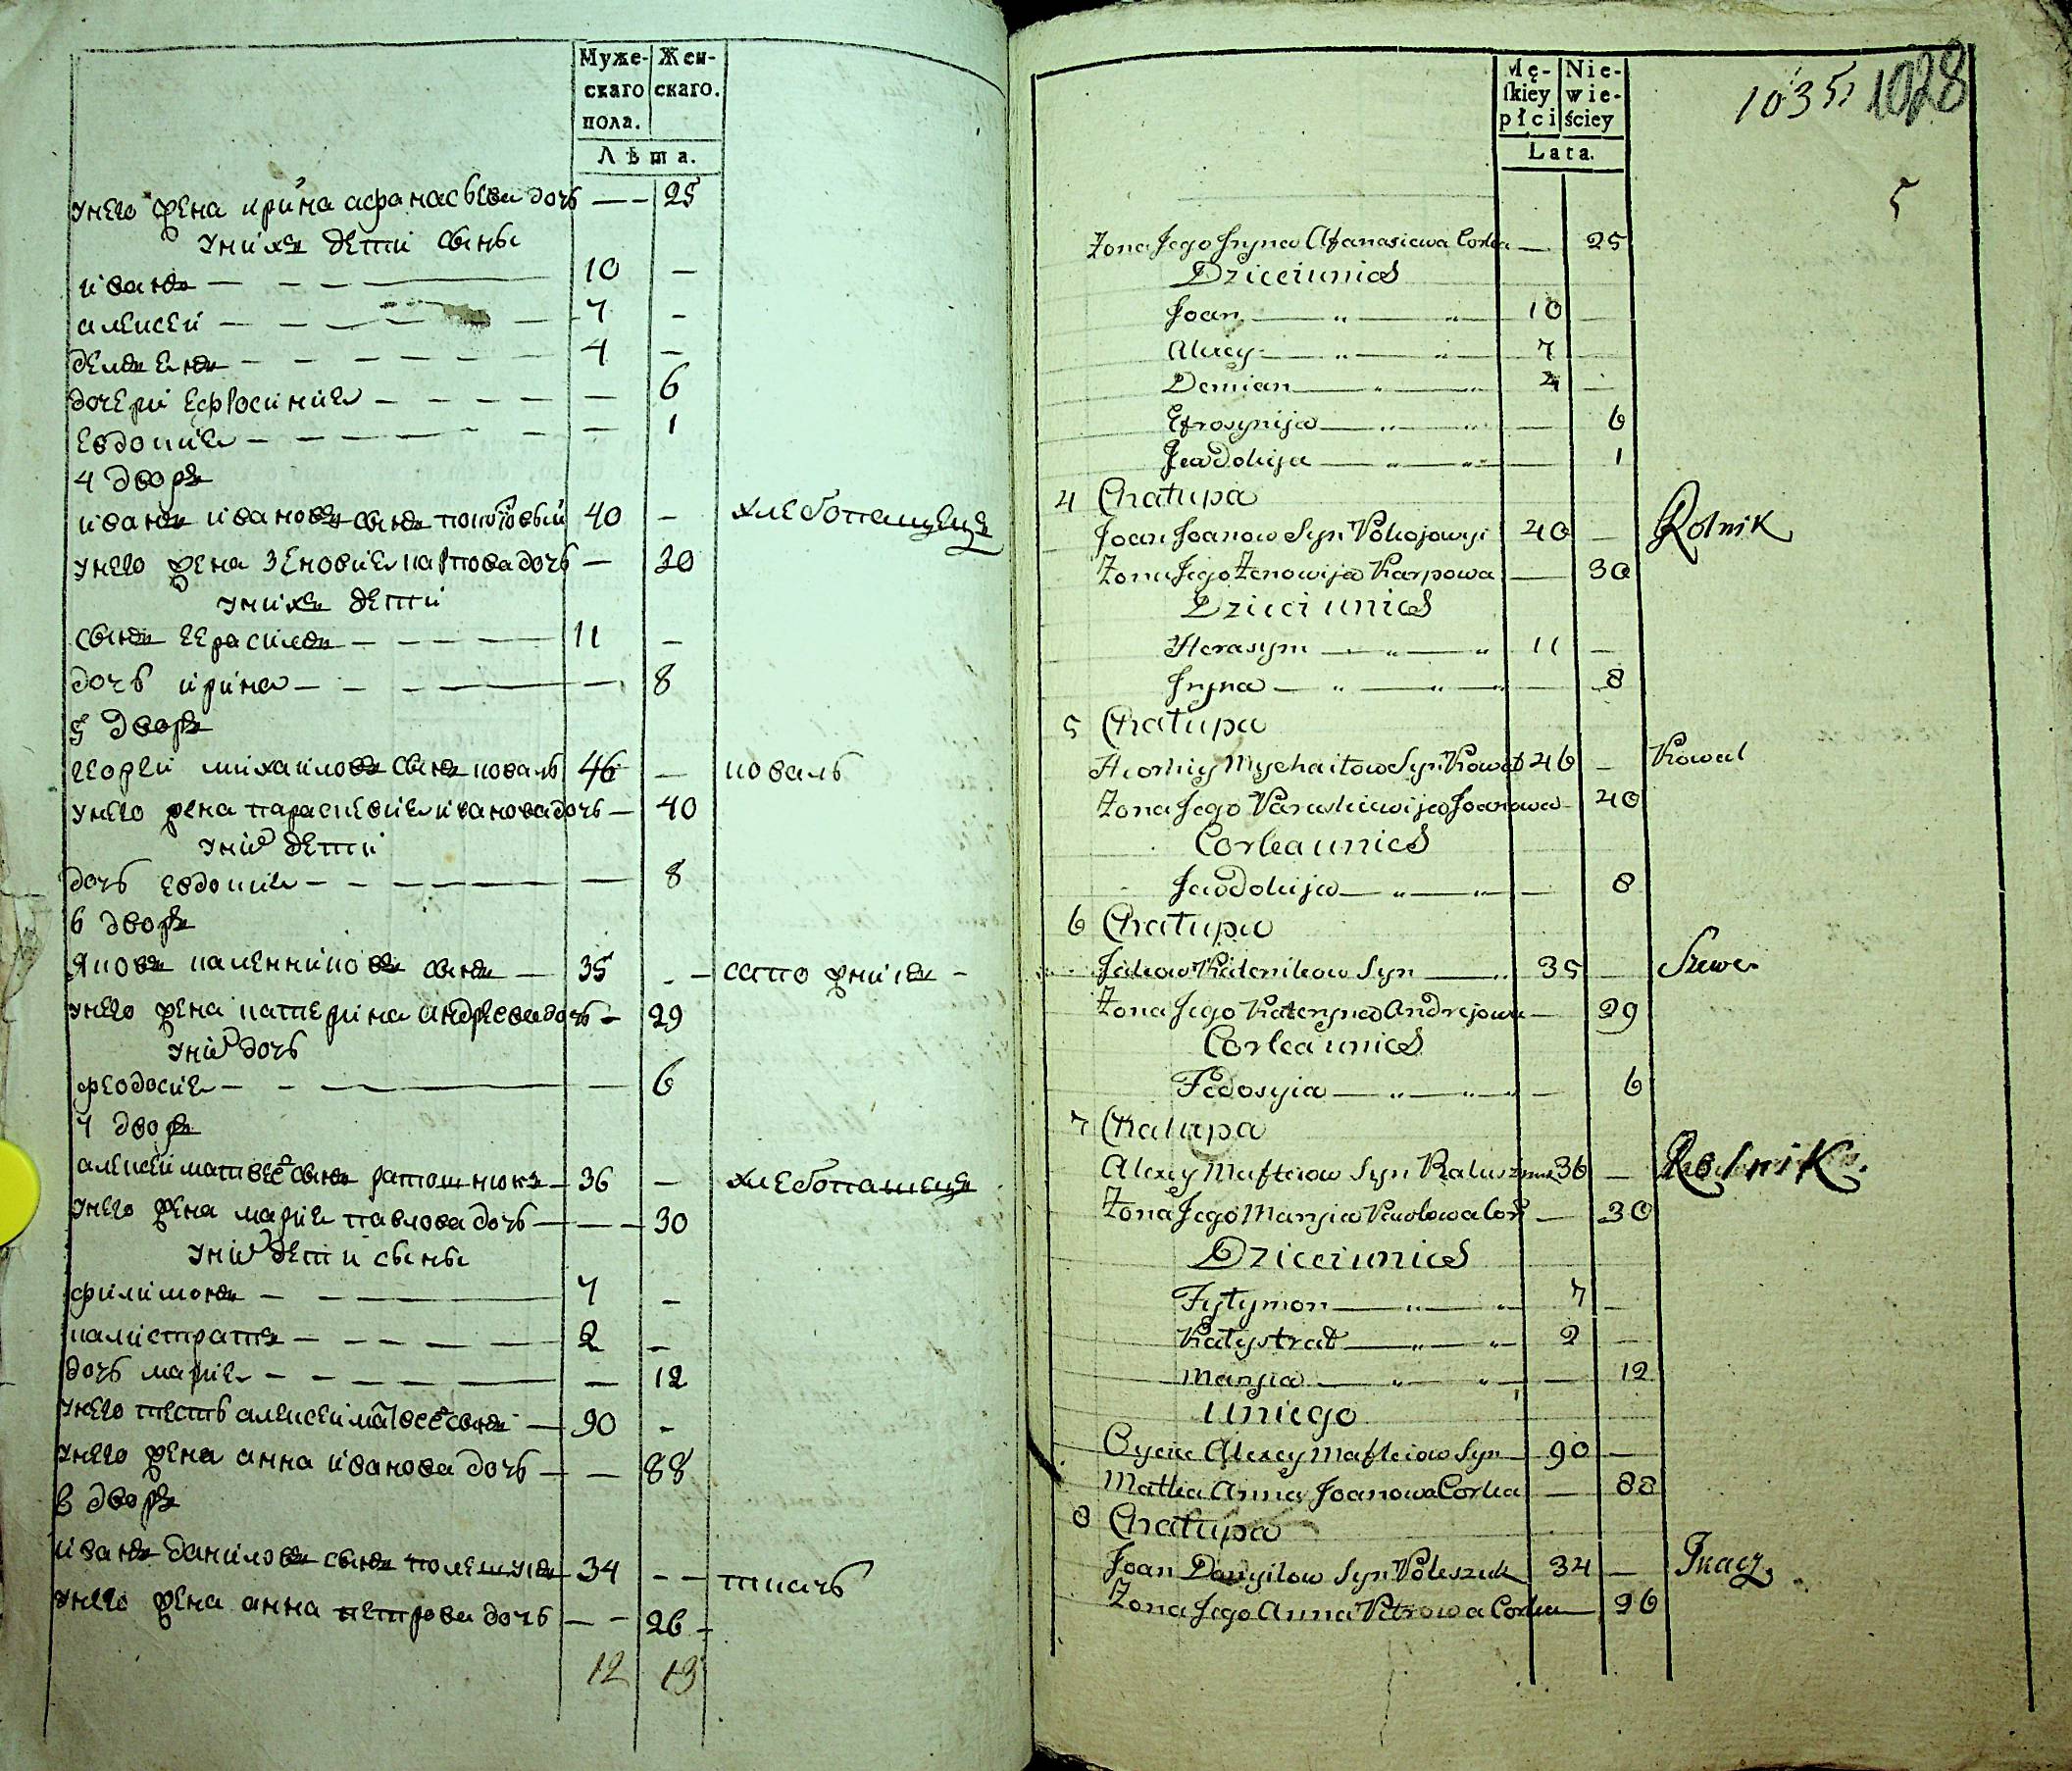 Муже-
скаго
пола.
Жен-
скаго.
Лѣта.
унего жена ирина афанасьева дочь — — 25
унихъ дети сыны
иванъ — 10 —
алексей — 7 —
демъенъ — 4 —
дочери ефросиния — — 6
евдокия — — 1
4 дворъ
иванъ ивановъ сынъ покоёвый 40 — хлебопашецъ
унего жена зеновия карпова дочь — 30
унихъ дети
сынъ герасимъ — 11 —
дочь ирина — — 8
5 дворъ
георгий михаиловъ сынъ коваль 46 — коваль
унего жена параскевия иванова дочь — 40
унихъ дети
дочь евдокия — — 8
6 дворъ
яковъ каленниковъ сынъ — 35 — сапожникъ —
унего жена катерина андреева дочь — 29
унихъ дочь
феодосия — — 6
7 дворъ
алексей матвеевъ сынъ ратошнюкъ — 36 — хлебопашецъ
унего жена мария павлова дочь — — 30
унихъ дети сыны
филимонъ — 7 —
калистратъ — 2 —
дочь мария — — 12
унего тесть алексей матвеевъ сынъ — 90 —
унего жена анна иванова дочь — — 88
8 дворъ
иванъ даниловъ сынъ полешукъ 34 — — ткачь
унего жена анна петрова дочь — — 26
12 13
Mę-
ſkiey
płci
Nie-
wie-
ściey
Lata.
1035 1028
5
Zona Jego Iryna Afanasiewa Corka — 25
Dzieci unich
Joan — „ — „ 10 —
Alexey — „ — „ 7 —
Demian — „ — „ 4 —
Efrosynija — „ — „ — 6
Jewdokija — „ — „ — 1
4 Chałupa
Joan Joanow Syn Pokojowyi 40 — Rolnik
Zona Jego Zenowija Karpowa — 30
Dzieci unich
Herasym — „ — „ 11 —
Iryna — „ — „ — 8
5 Chałupa
Heorhiy Mychaiłow Syn Kowal 46 — Kowal
Zona Jego Paraskiewija Joanowa — 40
Corka unich
Jewdokija — „ — „ — 8
6 Chałupa
Jakow Kalenikow Syn — „ 35 — Szewc
Zona Jego Kateryna Andrejowa — 29
Corka unich
Fedosyia — „ — „ — 6
7 Chałupa
Alexey Mafteiow Syn Ratuszniuk 36 — Rolnik.
Zona Jego Maryia Pawłowa Cor — 30
Dzieci unich
Fyłymon — „ — „ 7 —
Kałystrat — „ — „ 2 —
Maryia — „ — „ — 12
uniego
Oyciec Alexey Mafteiow Syn — 90 —
Matka Anna Joanowa Corka — 88
8 Chałupa
Joan Danyiłow Syn Poleszuk 34 — Tkacz.
Zona Jego Anna Petrowa Corka — 26